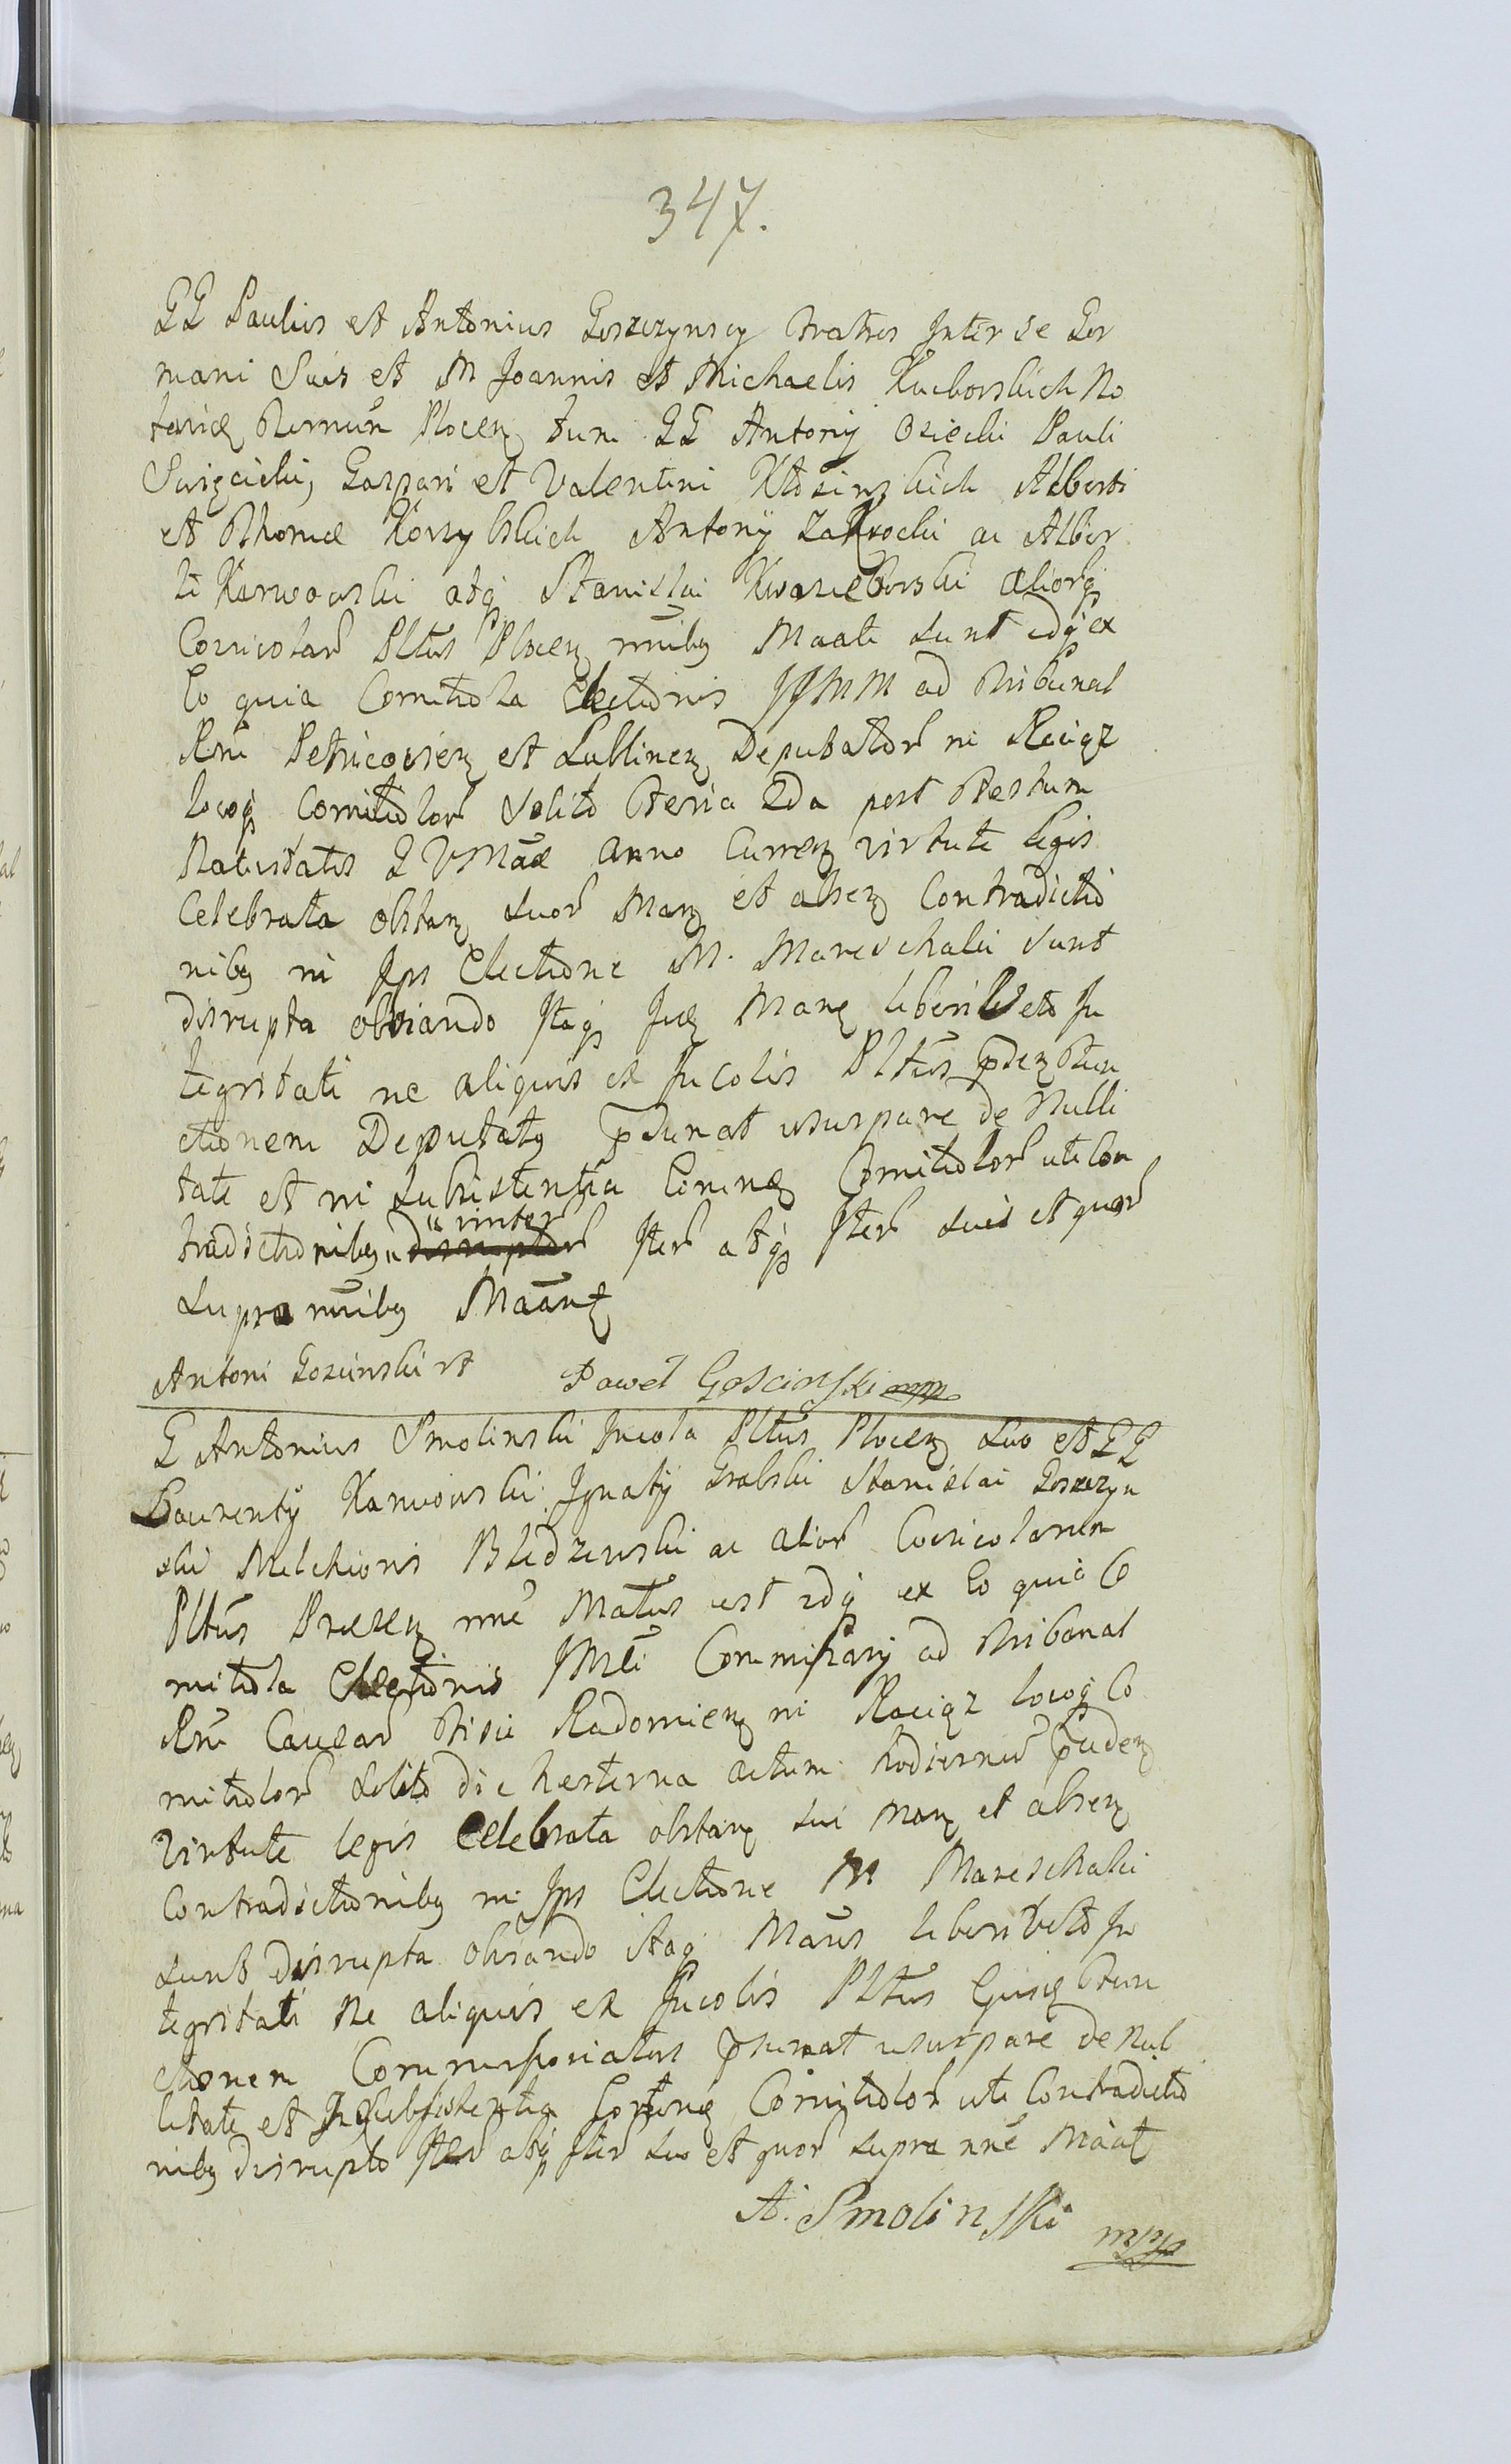 347.
GG Paulus et Antonius Goszczynscy Fratres Inter se Ger
mani Suis et M Joannis et Michaelis Kuborskich No
tarior Plocen tum GG Antonij Osiecki Pauli
Swięcicki, Gaspari et Valentini Kłosinskich Alberti
et Thomæ Korzybskich Antonij Zakrocki ac Alber
ti Karwowski atq Stanislai Kwasieborski aliorq
Coincolar Pltus Plocen nnibq Maati sunt idq ex
Eo quia Comitiola Electionis JJMM ad Tribunal
Rni Petricovien et Lublinen Deputator in Raciąz
locoq Comitiolor Solito Feria 2da post Festum
Nativitatis B VMae anno Curren virtute legis
Celebrata obstan suor Man et alien Contradictio
nibq in Ips Electione M. Mareschalci sunt
disrupta obviando Itaq Iidem Manen liberi Veto In
tegritati ne aliquis ex Incolis Pltus pden Fun
ctionem Deputatq psumat usurpare de Nulli
tate et in subsistentia Eorund Comitiolor uti Con
tradictionibq disruptor Iter atq Iter suis et quor
supra nnibq Maant
Antoni Gozinski Paweł Goscinski mpp
G Antonius Smolinski Incola Pltus Plocen suo et GG
Laurentij Karwowski Ignatij Grabski Stanislai Goszczyn
ski Melchioris Bledzewski ac alior Coincolarum
Pltus Præsen nne Matus est idq ex Eo quia Co
mitiola Electionis JMci Commissarij ad Tribunal
Rni Radomien in Raciąz locoq Co
mitiolor solito die hesterna actum hodiernum pceden
Virtute legis Celebrata obstan sui Man et alien
Contradictionibq in Ips Electione M Mareschalci
sunt disrupta obviando itaq Mans liberi Veto In
tegritati ne aliquis ex Incolis Pltus Ejusd Fun
ctionem Commissoriatus psumat usurpare de Nul
litate et Insubsistentia Eorund Comitiolor uti Contradictio
nibq disrupto Iter atq Iter suo et quor supra nne Maat
A. Smolinski mpp